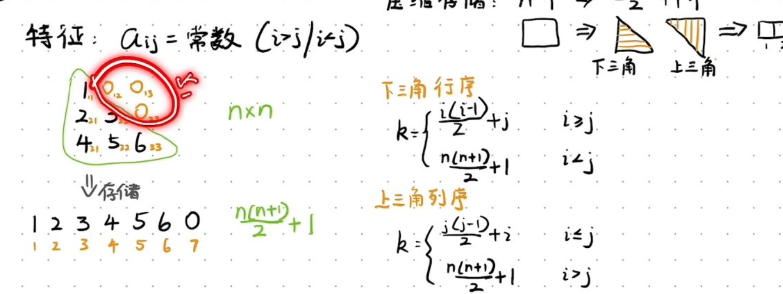 特征: aij = 常数 (i>j/i<j)
下三角 上三角
1₁₁ 0₁₂ 0₁₃
2₂₁ 3 0
4₂₁ 5₃₂ 6₃₃
n×n
⇓存储
1 2 3 4 5 6 0
1 2 3 4 5 6 7
n(n+1)/2 + 1
下三角行序
k = { i(i-1)/2 + j i≥j
n(n+1)/2 + 1 i<j
上三角列序
k = { j(j-1)/2 + i i≤j
n(n+1)/2 + 1 i>j